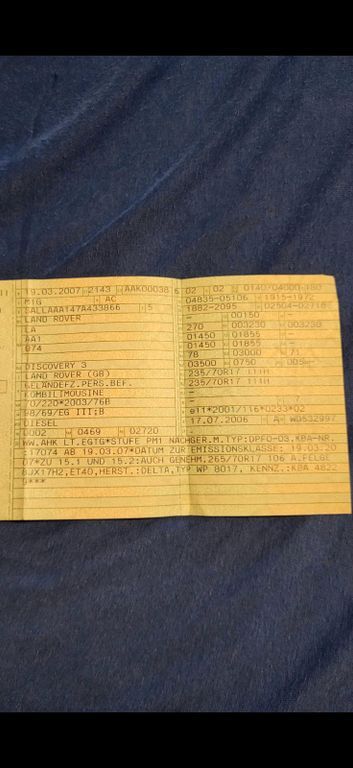 19.03.2007 2143 AAK00038 6
M1G AC
SALLAAA147A433866 5
LAND ROVER
LA
AA1
074
DISCOVERY 3
LAND ROVER (GB)
GELÄNDEFZ.PERS.BEF.
KOMBILIMOUSINE
70/220*2003/76B
98/69/EG III;B
DIESEL
0002 0469 02720
02 02 0140/04000 180
04835-05106 1915-1972
1882-2095 02504-02718
- 00150 -
270 003230 003230
01450 01855 -
01450 01855 -
78 03000 71
03500 0750
235/70R17 111H
235/70R17 111H
-
- 7
e11*2001/116*0233*02
17.07.2006 A WD532997
WW.AHK LT.EGTG*STUFE PM1 NACHGER.M.TYP:DPFO-03,KBA-NR.
:17074 AB 19.03.07*DATUM ZUR EMISSIONSKLASSE: 19.03.20
07*ZU 15.1 UND 15.2:AUCH GENEHM.265/70R17 106 A.FELGE
8JX17H2,ET40,HERST.:DELTA,TYP WP 8017, KENNZ.:KBA 4822
***